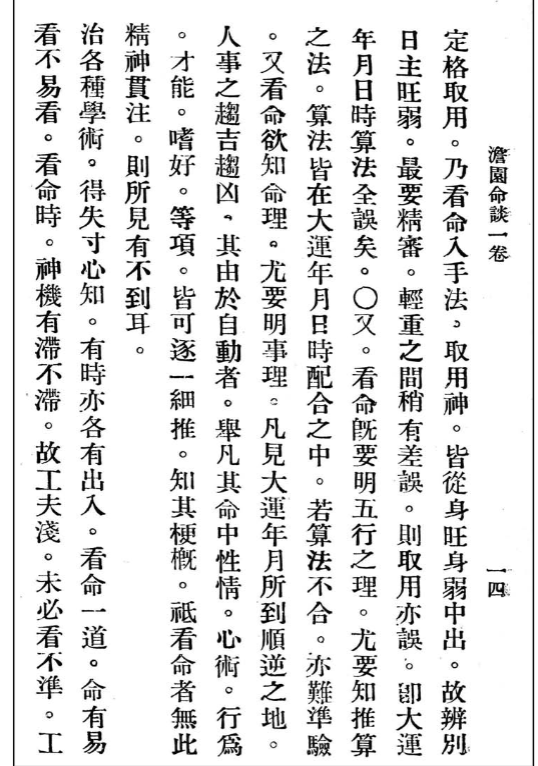 澹園命談一卷
一四
定格取用。乃看命入手法。取用神。皆從身旺身弱中出。故辨別
日主旺弱。最要精審。輕重之間稍有差誤。則取用亦誤。卽大運
年月日時算法全誤矣。〇又。看命旣要明五行之理。尤要知推算
之法。算法皆在大運年月日時配合之中。若算法不合。亦難準驗
。又看命欲知命理。尤要明事理。凡見大運年月所到順逆之地。
人事之趨吉趨凶、其由於自動者。舉凡其命中性情。心術。行爲
。才能。嗜好。等項。皆可逐一細推。知其梗槪。祇看命者無此
精神貫注。則所見有不到耳。
治各種學術。得失寸心知。有時亦各有出入。看命一道。命有易
看不易看。看命時。神機有滯不滯。故工夫淺。未必看不準。工